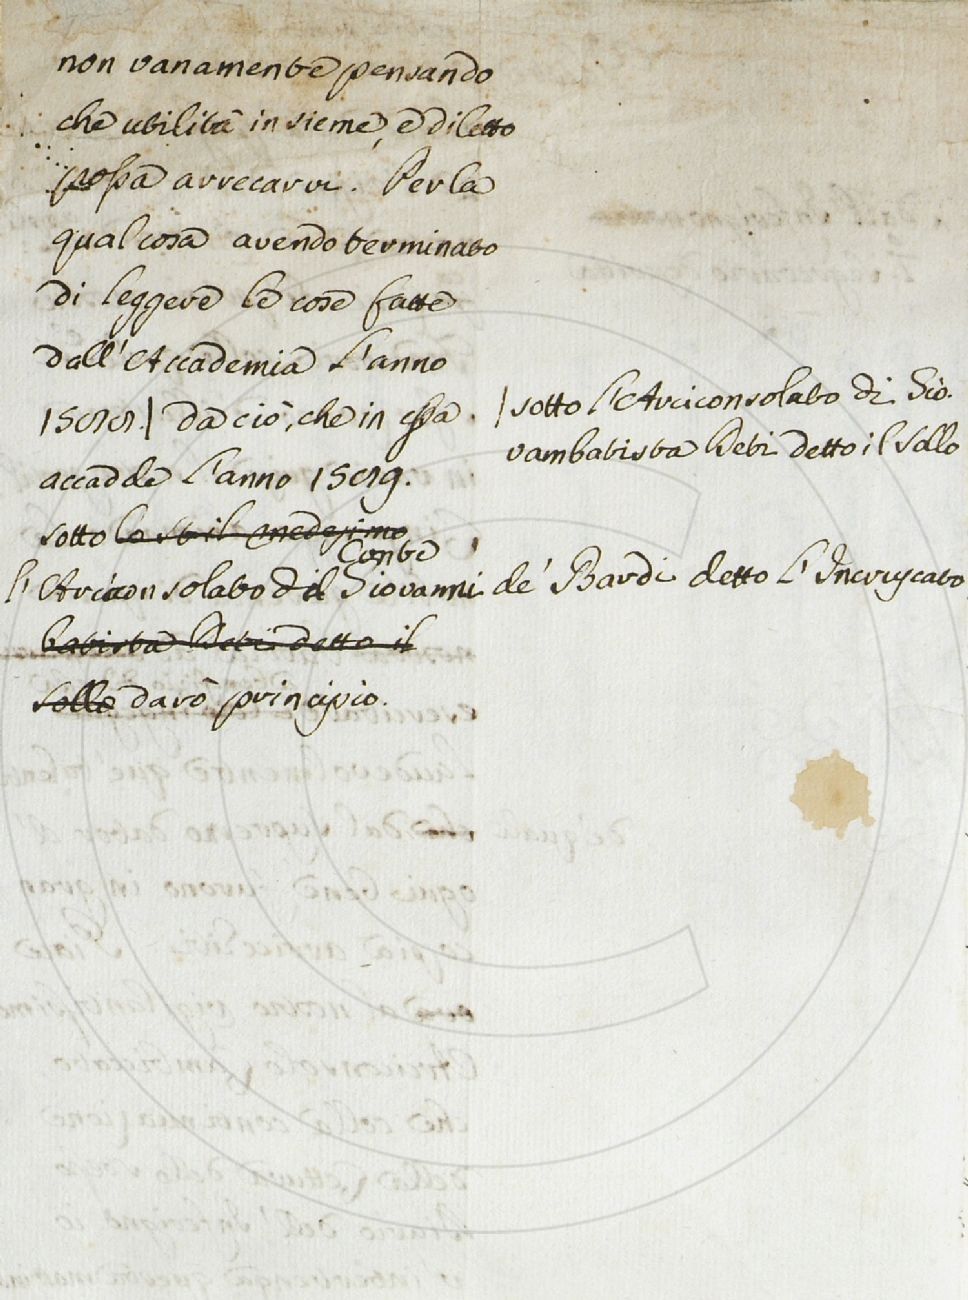 non vanamente pensando
che utilità insieme, e diletto
possa arrecarvi. Per la
qual cosa avendo terminato
di leggere le cose fatte
dall'Accademia l'anno
1588| da ciò, che in essa
|sotto l'Arciconsolato di Gio-
vambatista Deti detto il Sollo
accadde l'anno 1589.
sotto lo st il medesimo
Conte
l'Arciconsolato di Giovanni de' Bardi detto l'Incruscato,
batista Deti detto il
Sollo darò principio.